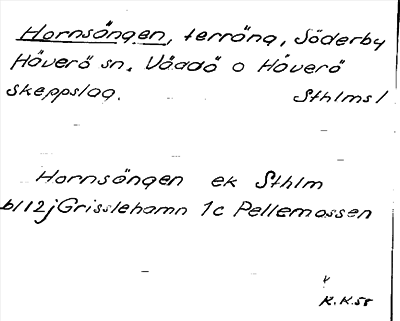 Hornsängen, terräng, Söderby
Häverö sn. Väddö o Häverö
skeppslag. Sthlms l
Hornsängen ek Sthlm
bl 12j Grisslehamn 1c Pellemossen
R.K.55